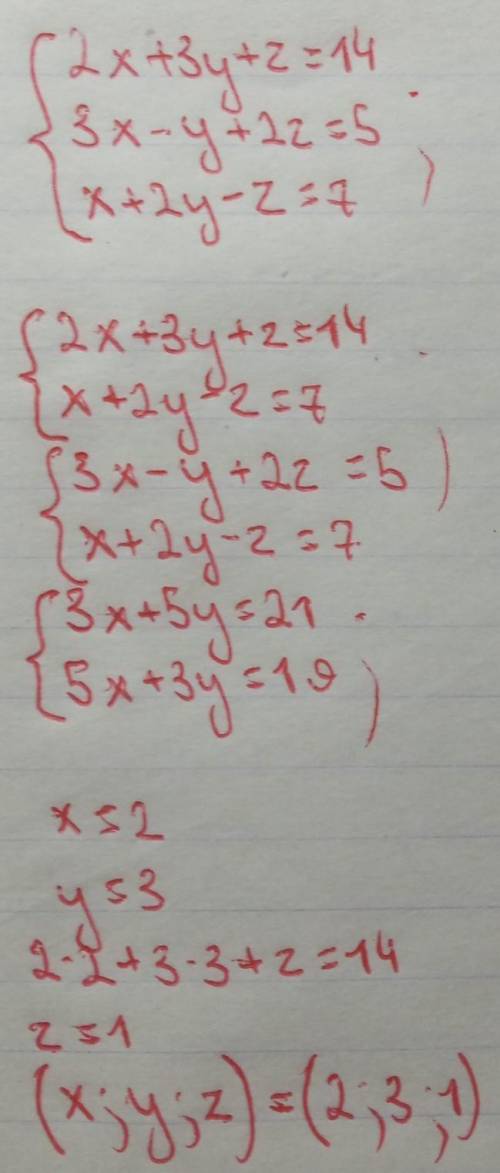 2x+3y+z=14
3x-y+2z=5
x+2y-z=7
2x+3y+z=14
x+2y-z=7
3x-y+2z=5
x+2y-z=7
3x+5y=21
5x+3y=19
x=2
y=3
2·2+3·3+z=14
z=1
(x;y;z)=(2;3;1)